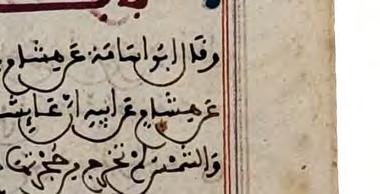 وقال ابو اسامة عن هشام
عن هشام عن ابيه ان عائشة
والشمس لم تخرج من حجرتها